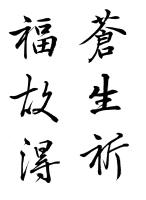 蒼生祈
福故得